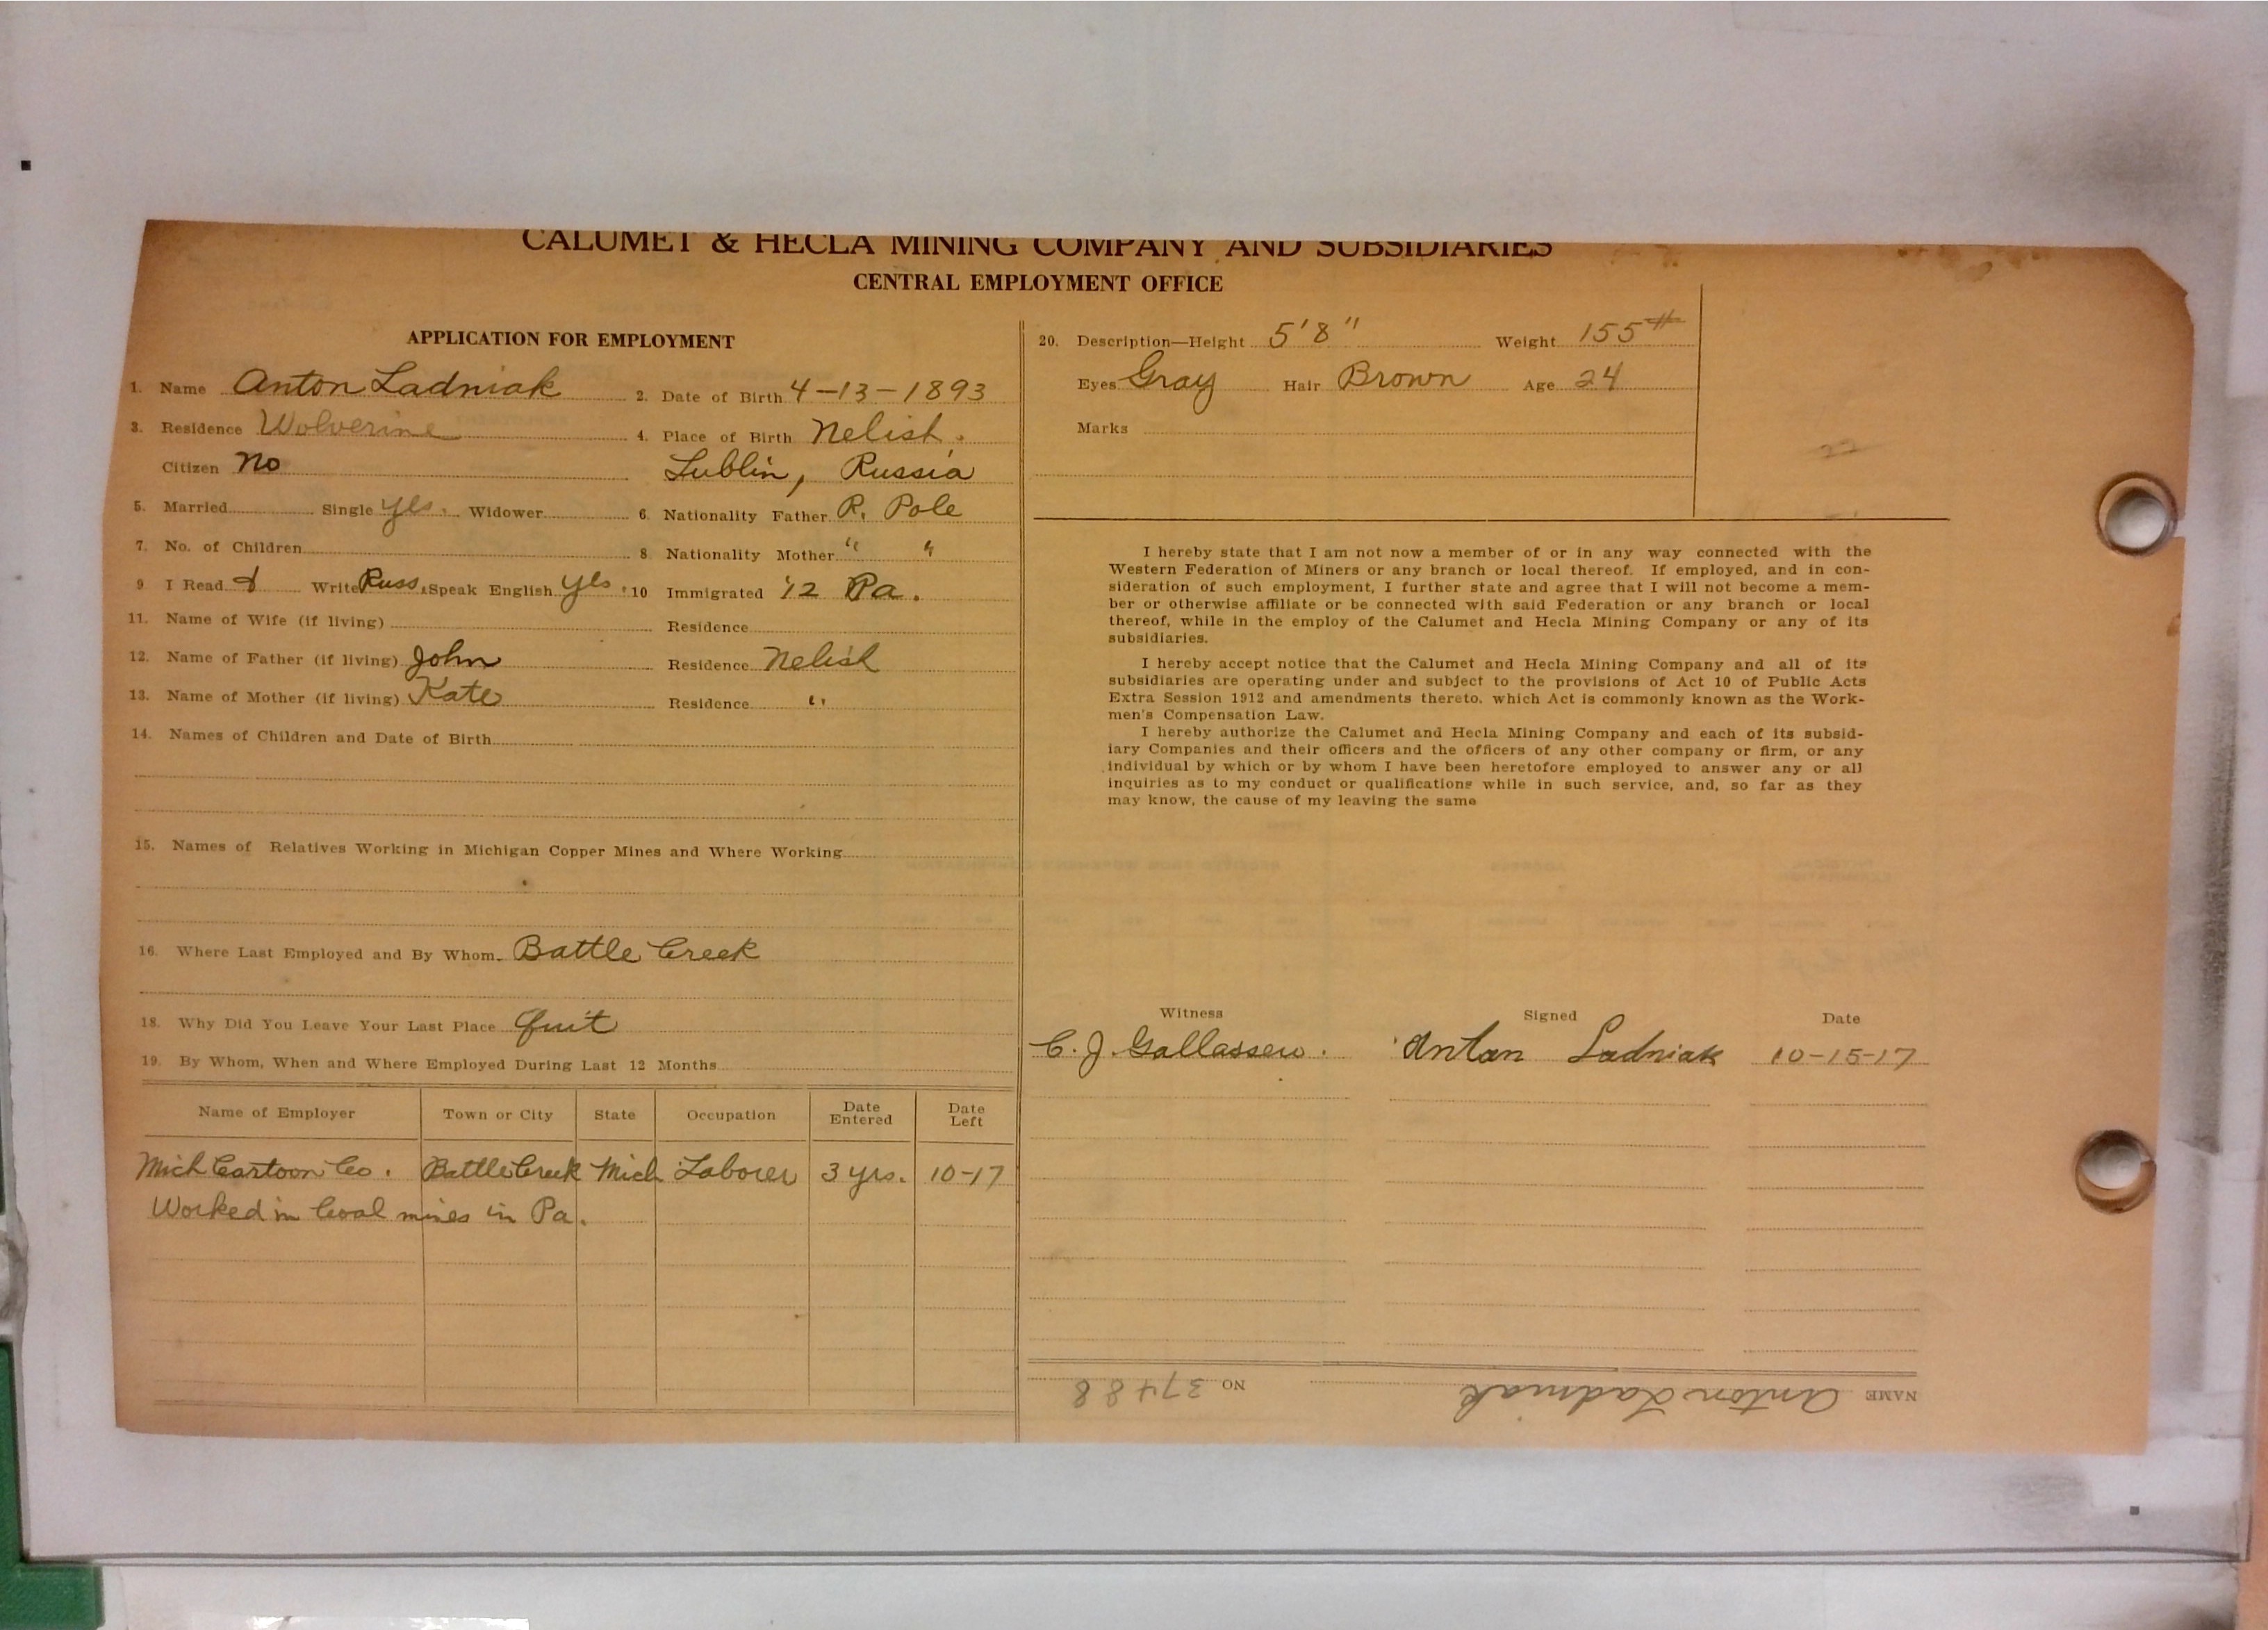 CALUMET & HECLA MINING COMPANY AND SUBSIDIARIES
CENTRAL EMPLOYMENT OFFICE
APPLICATION FOR EMPLOYMENT
1. Name Anton Ladniak 2. Date of Birth 4-13-1893
3. Residence Wolverine 4. Place of Birth Nelish.
Citizen No Lublin, Russia
5. Married Single Yes. Widower 6. Nationality Father R. Pole
7. No. of Children 8 Nationality Mother " "
9 I Read & Write Russ. Speak English Yes. 10 Immigrated '12 Pa.
11. Name of Wife (if living) Residence
12. Name of Father (if living) John Residence Nelish
13. Name of Mother (if living) Kate Residence "
14. Names of Children and Date of Birth
15. Names of Relatives Working in Michigan Copper Mines and Where Working
16. Where Last Employed and By Whom Battle Creek
18. Why Did You Leave Your Last Place Quit
19. By Whom, When and Where Employed During Last 12 Months
Name of Employer Town or City State Occupation Date Entered Date Left
Mich Cartoon Co. Battle Creek Mich Laborer 3 yrs. 10-17
Worked in Coal mines in Pa.
20. Description—Height 5'8" Weight 155#
Eyes Gray Hair Brown Age 24
Marks
I hereby state that I am not now a member of or in any way connected with the
Western Federation of Miners or any branch or local thereof. If employed, and in con-
sideration of such employment, I further state and agree that I will not become a mem-
ber or otherwise affiliate or be connected with said Federation or any branch or local
thereof, while in the employ of the Calumet and Hecla Mining Company or any of its
subsidiaries.
I hereby accept notice that the Calumet and Hecla Mining Company and all of its
subsidiaries are operating under and subject to the provisions of Act 10 of Public Acts
Extra Session 1912 and amendments thereto. which Act is commonly known as the Work-
men's Compensation Law.
I hereby authorize the Calumet and Hecla Mining Company and each of its subsid-
iary Companies and their officers and the officers of any other company or firm, or any
individual by which or by whom I have been heretofore employed to answer any or all
inquiries as to my conduct or qualifications while in such service, and, so far as they
may know, the cause of my leaving the same
Witness Signed Date
C. J. Gallassew. Antan Ladniak 10-15-17
NAME Anton Ladniak NO 37488